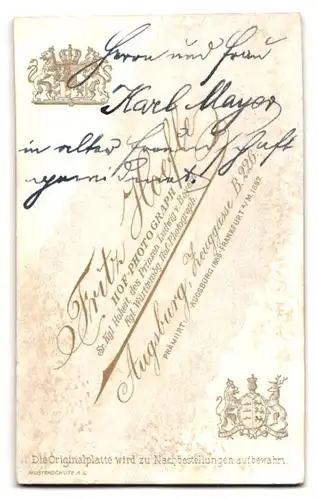 Herrn und Frau
Karl Mayer
in alter Freundschaft
gewidmet.
Fritz
HOF-PHOTOGRAPH
Sr. Kgl. Hoheit des Prinzen Ludwig v. Bayern
Kgl. Württembg. Hof-Photograph.
Augsburg, Zeuggasse B. 226.
PRÄMIIRT: AUGSBURG 1886 FRANKFURT A/M. 1887.
Die Originalplatte wird zu Nachbestellungen aufbewahrt.
MUSTERSCHUTZ A.G.